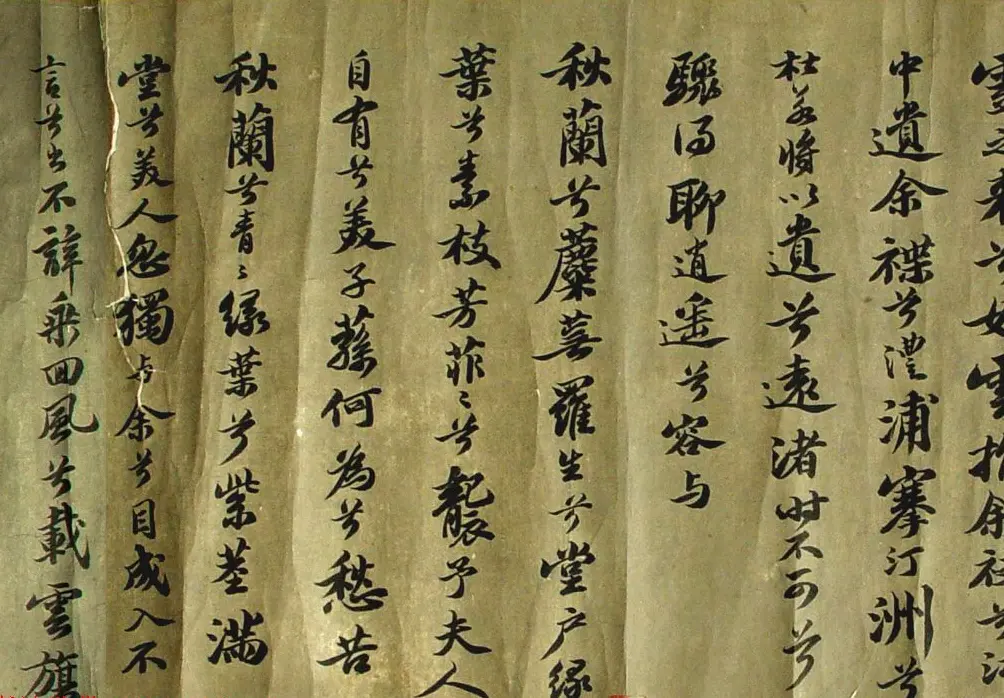 靈之來兮如雲捐余袂兮江
中遺余褋兮澧浦搴汀洲兮
杜若將以遺兮遠渚時不可兮
驟得聊逍遥兮容与
秋蘭兮蘪蕪羅生兮堂户緑
葉兮素枝芳菲〻兮襲予夫人
自有兮美子蓀何為兮愁苦
秋蘭兮青〻緑葉兮紫莖滿
堂兮美人忽獨与余兮目成入不
言兮出不辭乘回風兮載雲旗